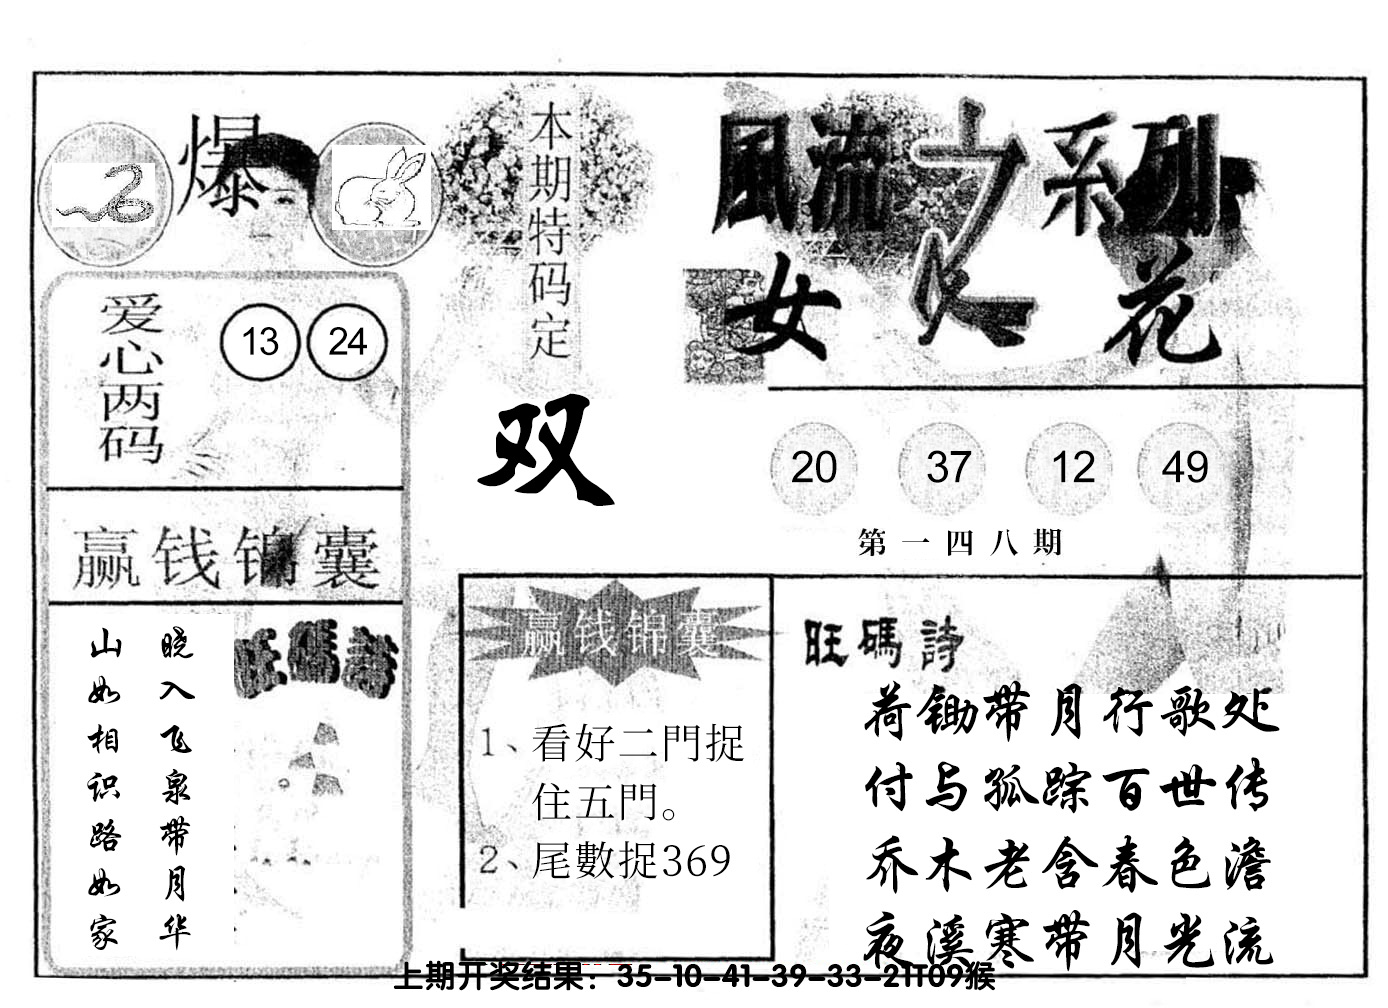 爆
本期特码定
双
風流之系列
女人花
爱心两码
13 24
20 37 12 49
第一四八期
赢钱锦囊
旺碼詩
晓入飞泉带月华
山如相识路如家
赢钱锦囊
1、看好二門捉
住五門。
2、尾數捉369
旺碼詩
荷锄带月行歌处
付与孤踪百世传
乔木老含春色澹
夜溪寒带月光流
上期开奖结果：35-10-41-39-33-21T09猴